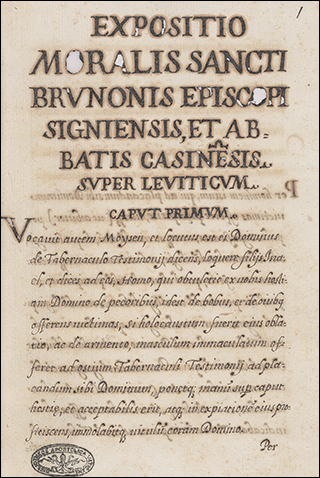 1
EXPOSITIO
MORALIS SANCTI
BRVNONIS EPISCOPI
SIGNIENSIS, ET AB=
BATIS CASINESIS.
SVPER LEVITICVM.
CAPVT PRIMVM.
Vocavit autem Moysen, et locutus est ei Dominus
de Tabernaculo Testimonij dicens, loquere filijs Isra
el, et dices ad eos, Homo, qui obtulerit ex vobis hosti
am Domino de pecoribus, idest de bobus, et de ovibus
offerens victimas, si holocaustum fuerit eius obla
tio, ac de armento, masculum immaculatum of=
feret ad ostium Tabernaculi Testimonij ad pla=
candum sibi Dominum, ponetq; manus sup caput
hostie, et acceptabilis erit, atq; in expiatione eius pro
ficiens, immolabitq; vitulum coram Domino.
Per